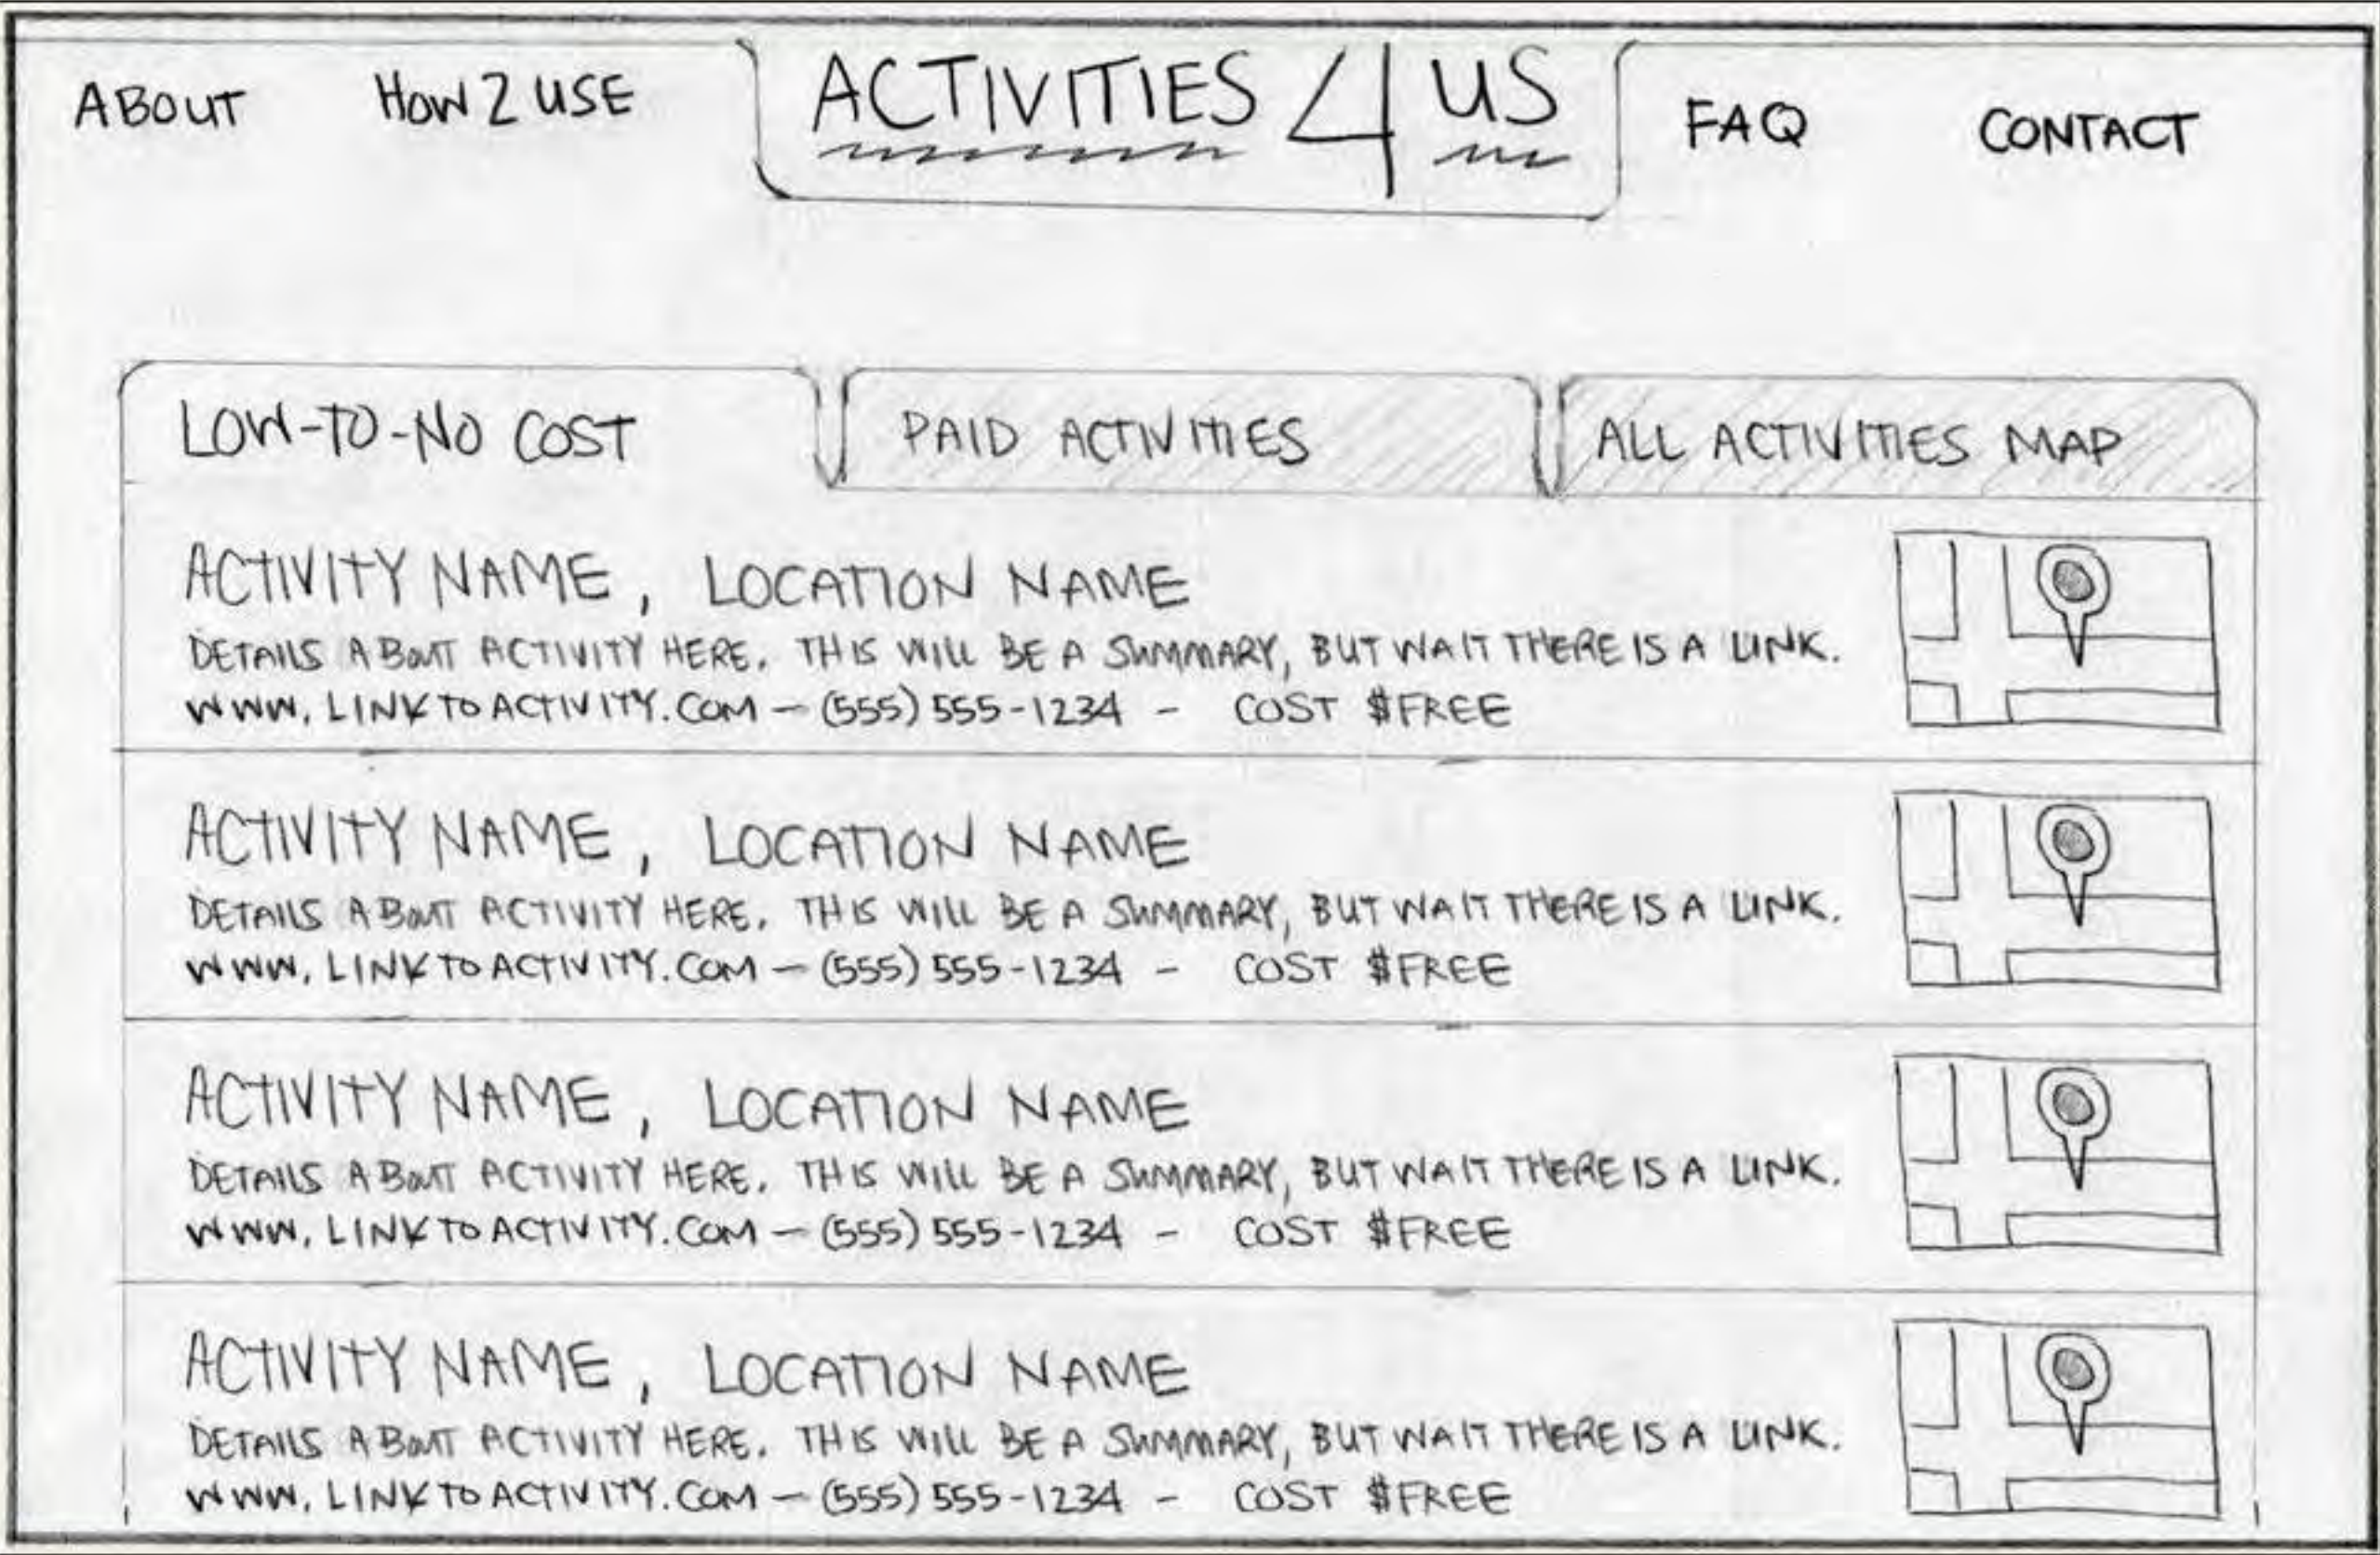 ABOUT HOW 2 USE ACTIVITIES 4 US FAQ CONTACT
LOW-TO-NO COST PAID ACTIVITIES ALL ACTIVITIES MAP
ACTIVITY NAME, LOCATION NAME
DETAILS ABOUT ACTIVITY HERE. THIS WILL BE A SUMMARY, BUT WAIT THERE IS A LINK.
WWW.LINKTOACTIVITY.COM - (555) 555-1234 - COST $FREE
ACTIVITY NAME, LOCATION NAME
DETAILS ABOUT ACTIVITY HERE. THIS WILL BE A SUMMARY, BUT WAIT THERE IS A LINK.
WWW.LINKTOACTIVITY.COM - (555) 555-1234 - COST $FREE
ACTIVITY NAME, LOCATION NAME
DETAILS ABOUT ACTIVITY HERE. THIS WILL BE A SUMMARY, BUT WAIT THERE IS A LINK.
WWW.LINKTOACTIVITY.COM - (555) 555-1234 - COST $FREE
ACTIVITY NAME, LOCATION NAME
DETAILS ABOUT ACTIVITY HERE. THIS WILL BE A SUMMARY, BUT WAIT THERE IS A LINK.
WWW.LINKTOACTIVITY.COM - (555) 555-1234 - COST $FREE